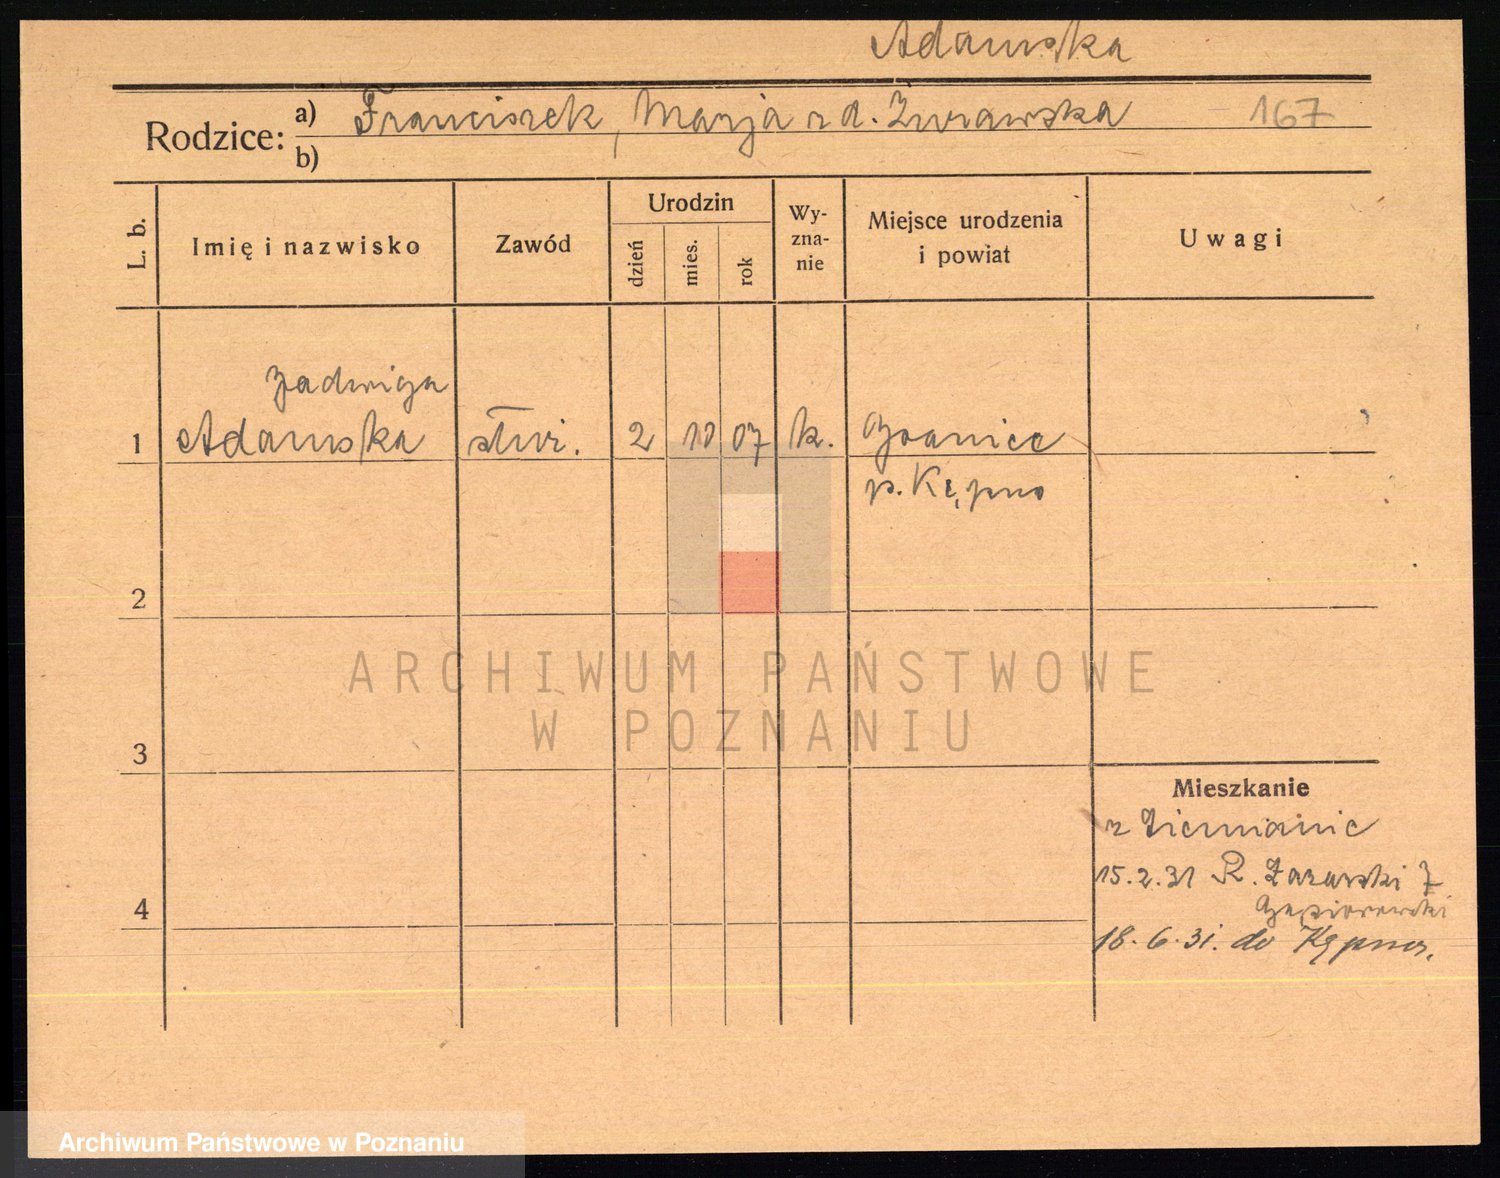 Adamska
Rodzice: a) Franciszek, Marja z d. Żurawska 167
b)
L. b. Imię i nazwisko Zawód Urodzin dzień mies. rok Wyznanie Miejsce urodzenia i powiat Uwagi
Jadwiga
1 Adamska służ. 2 10 07 k. Granice
p. Kępno
2
ARCHIWUM PAŃSTWOWE
W POZNANIU
3
Mieszkanie
z Siemianic
15.2.31 R. 7
4
18.6.31. do Kępna.
Archiwum Państwowe w Poznaniu